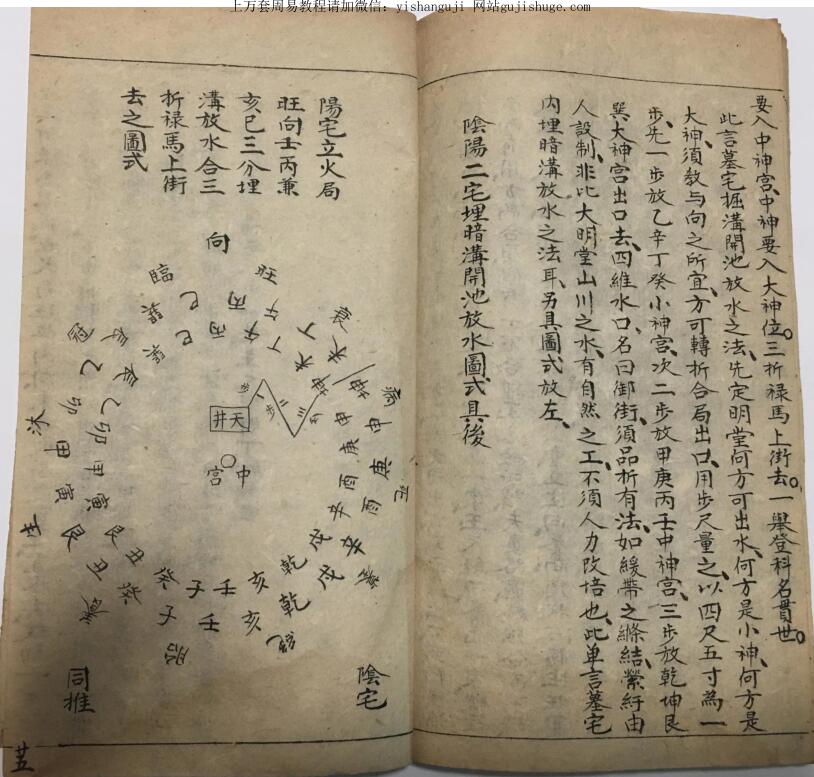 上万套周易教程请加微信：yishanguji 网站gujishuge.com
要入中神宫、中神要入大神位。三折禄馬上街去。一舉登科名貫世。
此言墓宅掘溝開池放水之法、先定明堂何方可出水、何方是小神、何方是
大神、須教与向之所宜、方可轉折合局出口、用步尺量之、以四尺五寸為一
步、先一步放乙辛丁癸小神宫、次二步放甲庚丙壬中神宫、三步放乾坤艮
巽大神宫出口去、四維水口、名曰御街、須品折有法、如緩帶之絛結縈紆由
人設制、非比大明堂山川之水、有自然之工、不須人力改培也、此单言墓宅
内埋暗溝放水之法耳、另具圖式放左、
陰陽二宅埋暗溝開池放水圖式具後
陽宅立火局
旺向壬丙兼
亥巳三分埋
溝放水合三
折禄馬上街
去之圖式
向
旺
臨
冠
沐
生
養
胎
絕
墓
死
病
衰
丙午丁未坤申庚酉辛戌乾亥壬子癸丑艮寅甲卯乙辰巽巳
丙午丁未坤申庚酉辛戌乾亥壬子癸丑艮寅甲卯乙辰巽巳
天井
一步
二步
三
中宫
陰宅
同推
廿五